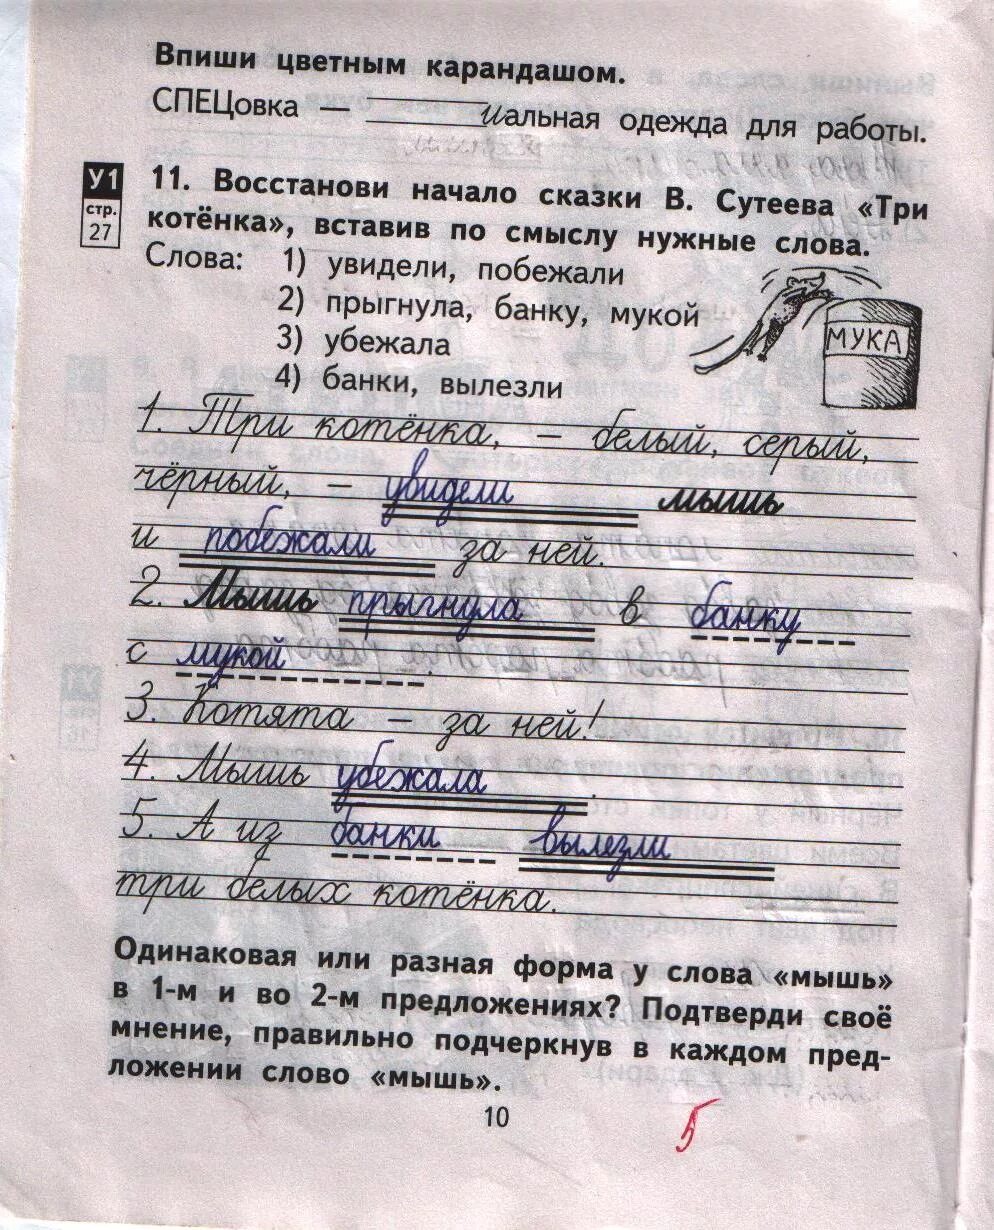 Впиши цветным карандашом.
СПЕЦовка — ________иальная одежда для работы.
У1
стр.
27
11. Восстанови начало сказки В. Сутеева «Три
котёнка», вставив по смыслу нужные слова.
Слова: 1) увидели, побежали
2) прыгнула, банку, мукой
3) убежала
4) банки, вылезли
МУКА
1. Три котёнка, – белый, серый,
чёрный, – увидели мышь
и побежали за ней.
2. Мышь прыгнула в банку
с мукой.
3. Котята – за ней!
4. Мышь убежала.
5. А из банки вылезли
три белых котёнка.
Одинаковая или разная форма у слова «мышь»
в 1-м и во 2-м предложениях? Подтверди своё
мнение, правильно подчеркнув в каждом пред-
ложении слово «мышь».
10
5